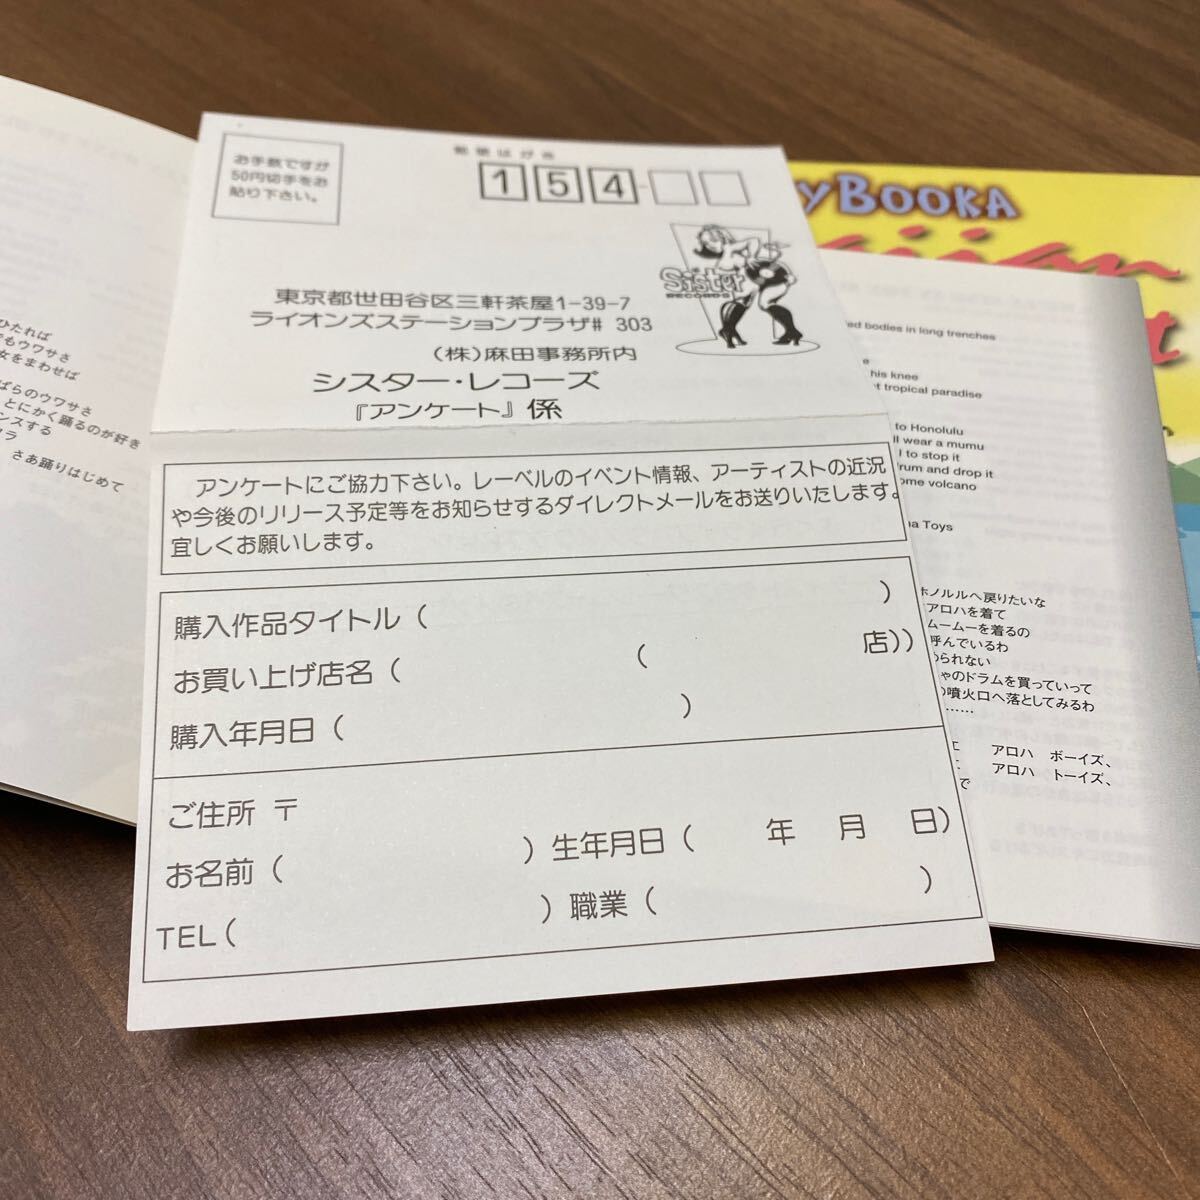 郵便はがき
お手数ですが
50円切手をお
貼り下さい。
154-
Sister
RECORDS
東京都世田谷区三軒茶屋1-39-7
ライオンズステーションプラザ# 303
(株)麻田事務所内
シスター・レコーズ
『アンケート』係
アンケートにご協力下さい。レーベルのイベント情報、アーティストの近況
や今後のリリース予定等をお知らせするダイレクトメールをお送りいたします。
宜しくお願いします。
購入作品タイトル( )
お買い上げ店名( ( 店))
購入年月日( )
ご住所 〒
お名前( ) 生年月日( 年 月 日)
TEL( ) 職業( )
ひたれば
もウワサさ
女をまわせば
ばらのウワサさ
とにかく踊るのが好き
ンスする
フラ
さあ踊りはじめて
yBOOKA
ed bodies in long trenches
his knee
tropical paradise
to Honolulu
ll wear a mumu
to stop it
drum and drop it
ome volcano
Toys
ホノルルへ戻りたいな
アロハを着て
ムームーを着るの
呼んでいるわ
められない
ゃのドラムを買っていって
の噴火口へ落としてみるわ
……
アロハ ボーイズ、
アロハ トーイズ、
で